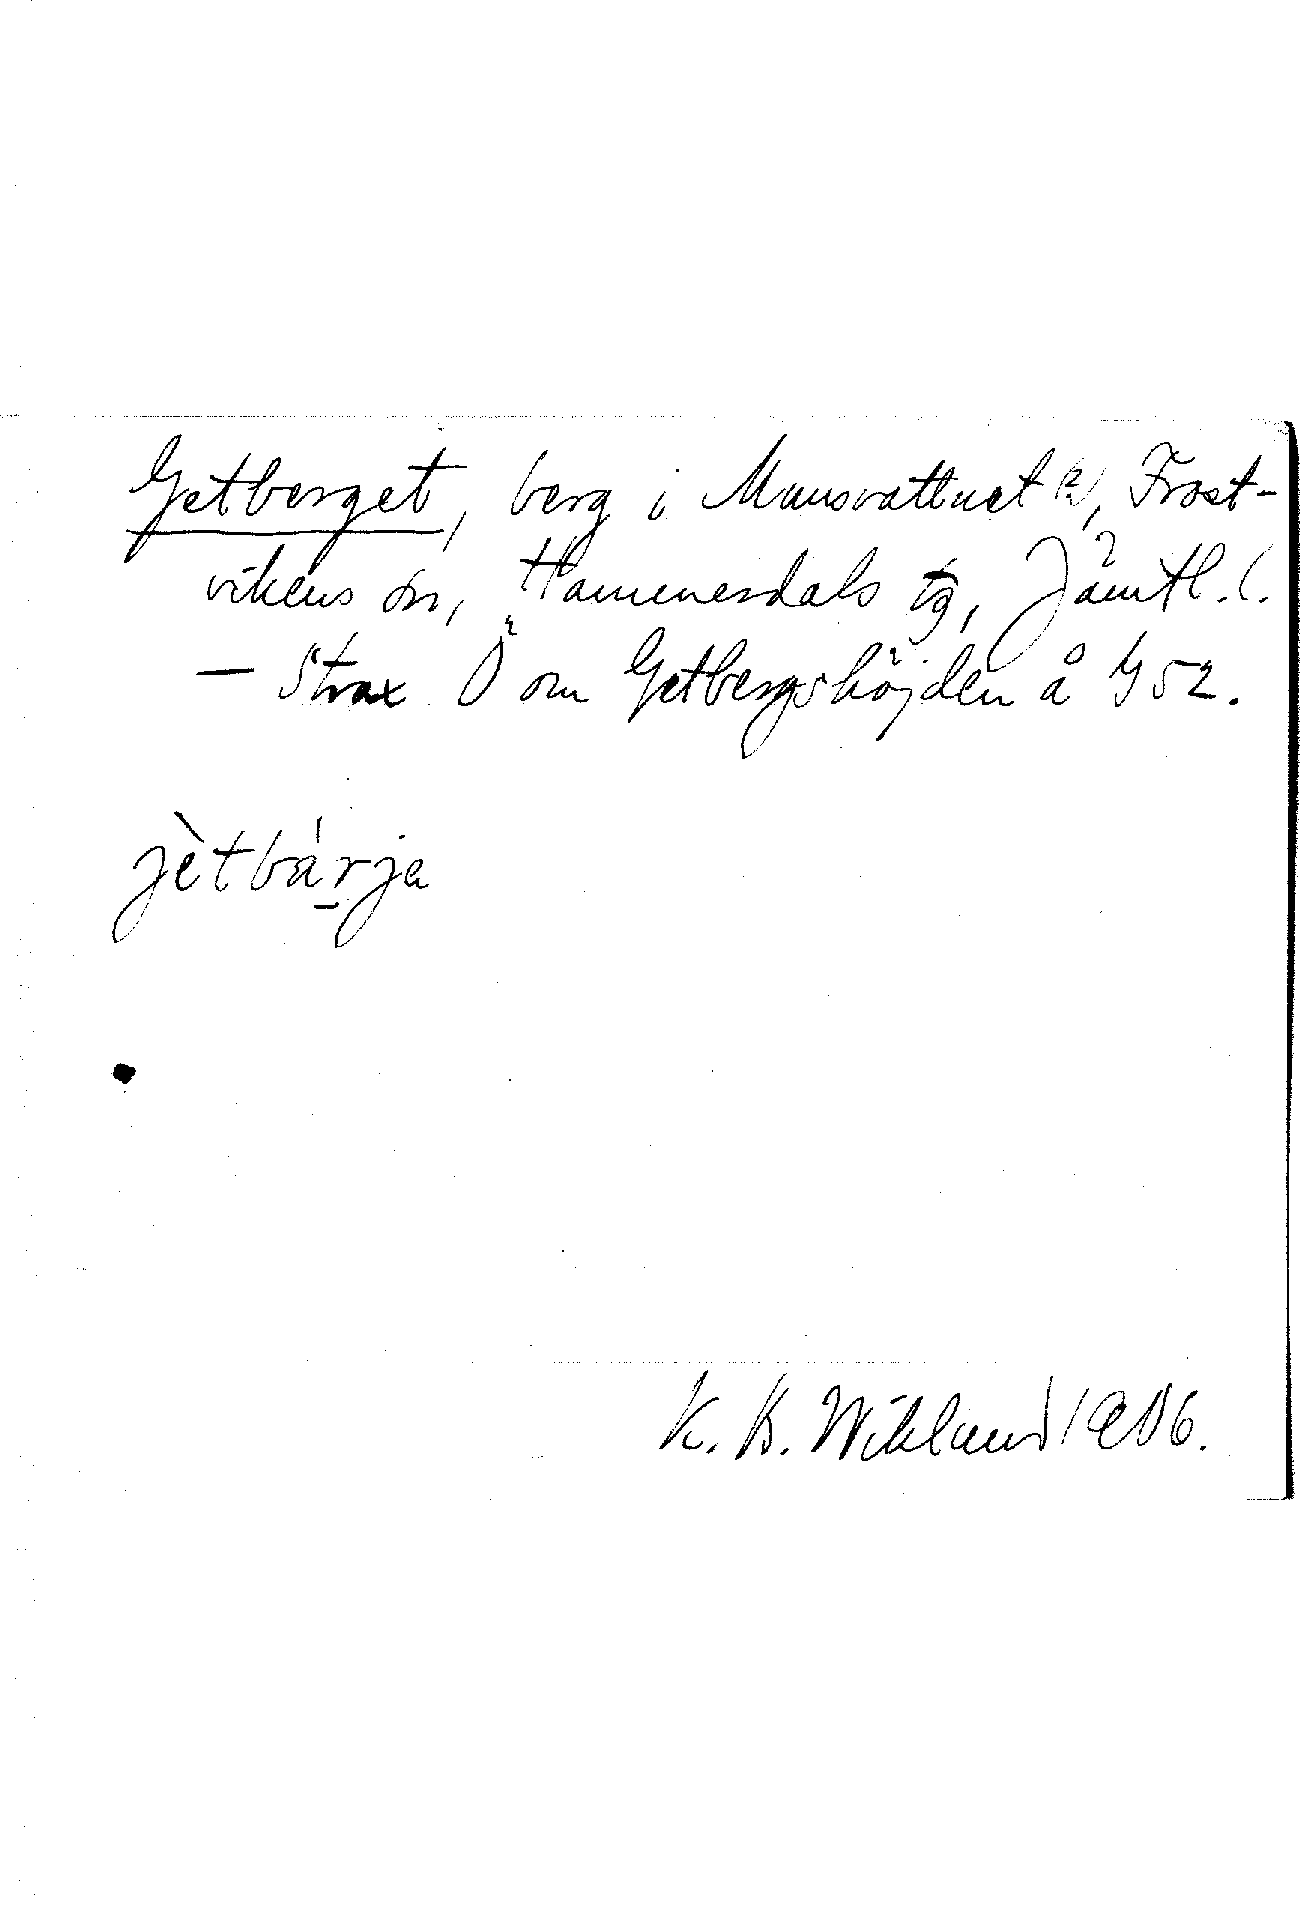 Getberget, berg i Mansvattnet (?), Frost-
vikens sn, Hammerdals tg, Jämtl. l.
— Strax Ö om Getbergshöjden å G 52.
jètbárja
K. B. Wiklund 1906.